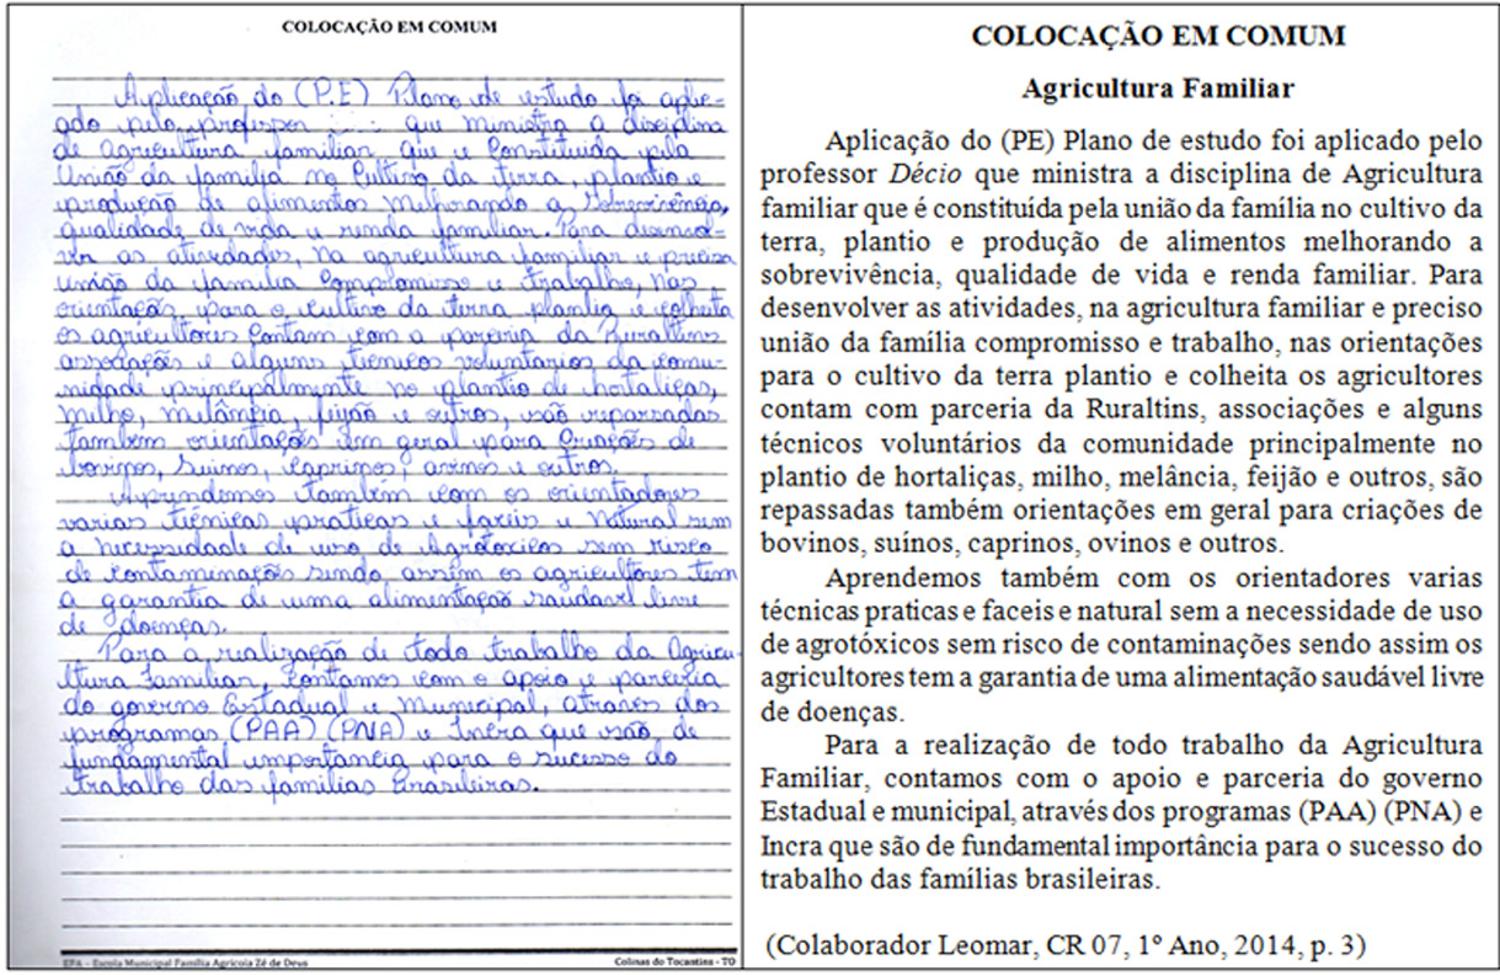 COLOCAÇÃO EM COMUM
Aplicação do (P.E) Plano de estudo foi aplic-
ado pelo professor ..... que ministra a disciplina
de agricultura familiar que e Constituida pela
União da familia no Cultivo da terra, plantio e
produção de alimentos melhorando a sobrevivência,
qualidade de vida e renda familiar. Para desenvol-
ver as atividades, na agricultura familiar e preciso
união da familia Compromisso e trabalho, nas
orientações para o cultivo da terra plantio e colheita
os agricultores Contam com a parceria da Ruraltins
associações e alguns técnicos voluntarios da comu-
nidade principalmente no plantio de hortaliças,
milho, melância, feijão e outros, são repassadas
também orientações em geral para Criações de
bovinos, suinos, caprinos, ovinos e outros.
Aprendemos também com os orientadores
varias técnicas praticas e faceis e Natural sem
a necessidade de uso de Agrotoxicos sem risco
de contaminações sendo assim os agricultores tem
a garantia de uma alimentação saudavel livre
de doenças.
Para a realização de todo trabalho da Agricu-
ltura Familiar, Contamos com o apoio e parceria
do governo Estadual e Municipal, atraves dos
programas (PAA) (PNA) e Incra que são de
fundamental importancia para o sucesso do
trabalho das familias Brasileiras.
EFA - Escola Municipal Família Agrícola Zé de Deus
Colinas do Tocantins - TO
COLOCAÇÃO EM COMUM
Agricultura Familiar
Aplicação do (PE) Plano de estudo foi aplicado pelo
professor Décio que ministra a disciplina de Agricultura
familiar que é constituída pela união da família no cultivo da
terra, plantio e produção de alimentos melhorando a
sobrevivência, qualidade de vida e renda familiar. Para
desenvolver as atividades, na agricultura familiar e preciso
união da família compromisso e trabalho, nas orientações
para o cultivo da terra plantio e colheita os agricultores
contam com parceria da Ruraltins, associações e alguns
técnicos voluntários da comunidade principalmente no
plantio de hortaliças, milho, melância, feijão e outros, são
repassadas também orientações em geral para criações de
bovinos, suínos, caprinos, ovinos e outros.
Aprendemos também com os orientadores varias
técnicas praticas e faceis e natural sem a necessidade de uso
de agrotóxicos sem risco de contaminações sendo assim os
agricultores tem a garantia de uma alimentação saudável livre
de doenças.
Para a realização de todo trabalho da Agricultura
Familiar, contamos com o apoio e parceria do governo
Estadual e municipal, através dos programas (PAA) (PNA) e
Incra que são de fundamental importância para o sucesso do
trabalho das famílias brasileiras.
(Colaborador Leomar, CR 07, 1º Ano, 2014, p. 3)